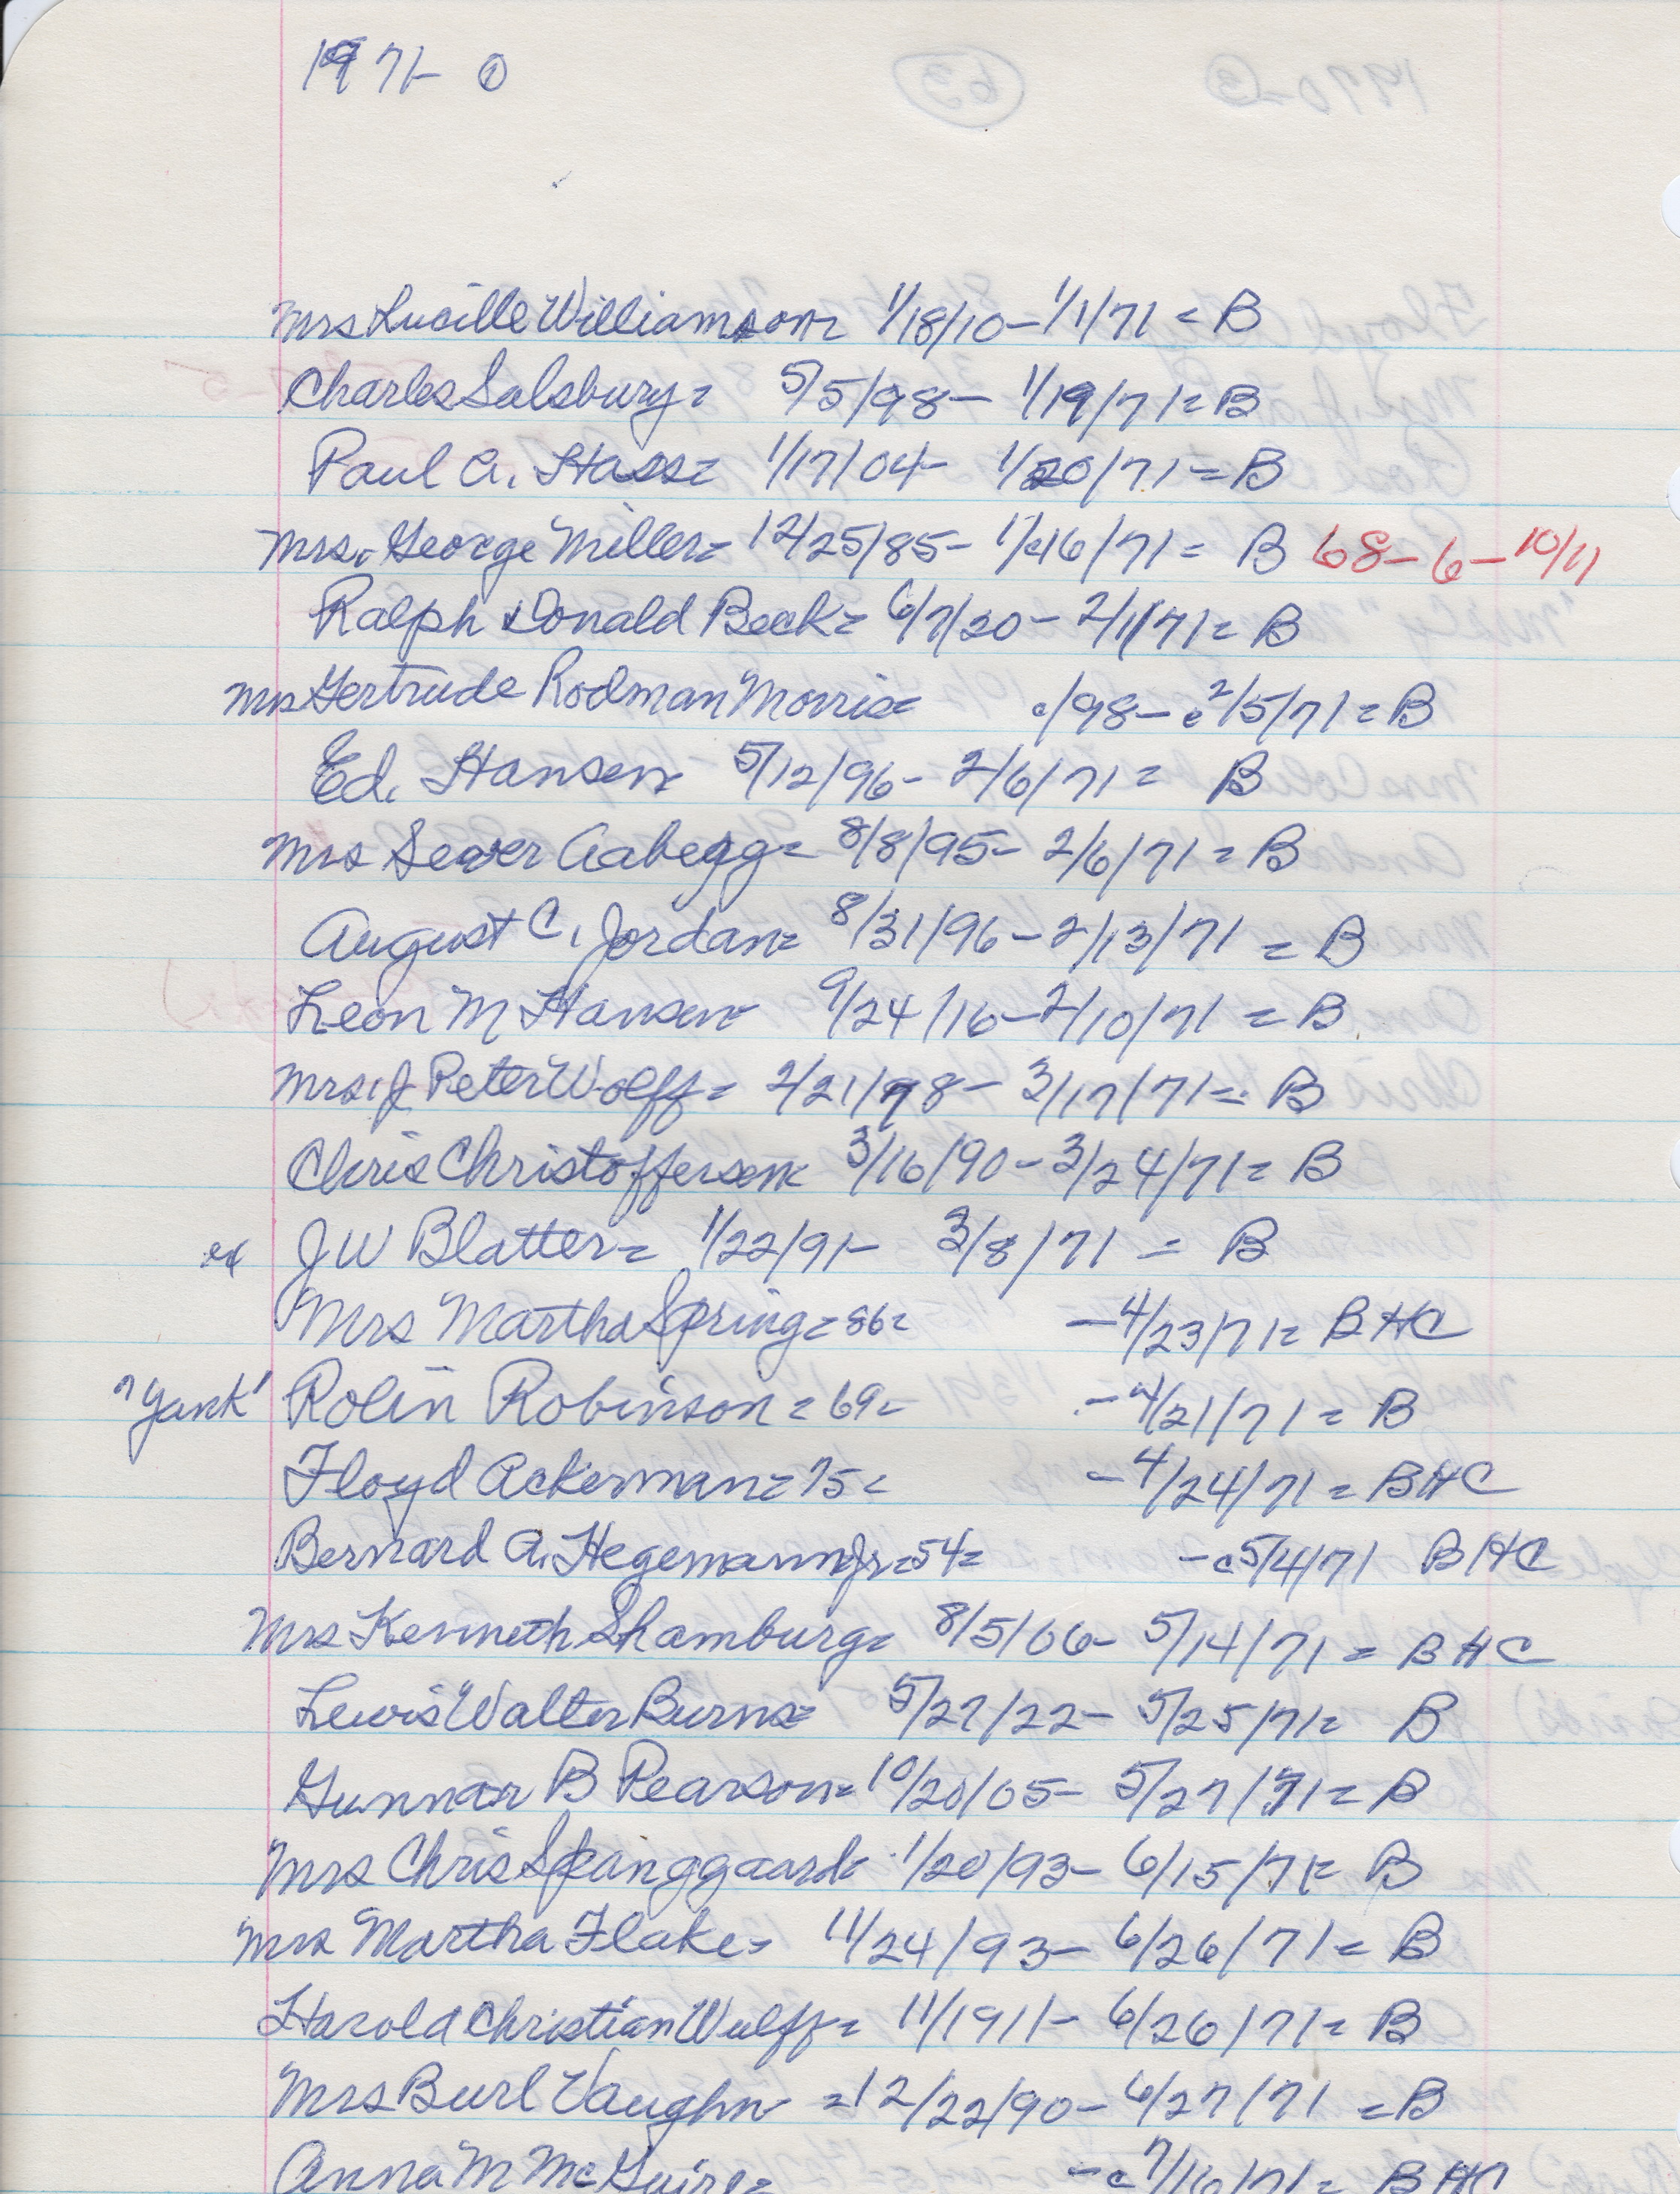 1971- ①
Mrs Lucille Williamson= 1/18/10-1/1/71 = B
Charles Salsbury= 5/5/98- 1/19/71= B
Paul A. Hass= 1/17/04- 1/20/71= B
Mrs. George Miller= 12/25/85- 1/c16/71= B 68-6-10/11
Ralph Donald Beck= 6/7/20- 2/1/71= B
Mrs Gertrude Rodman Morris= c/98- c2/5/71= B
Ed. Hansen= 5/12/96- 2/6/71= B
Mrs Sever Aabegg= 8/8/95- 2/6/71= B
August C. Jordan= 8/31/96-2/13/71 = B
Leon M Hansen= 9/24/16-2/10/71 = B
Mrs. J Peter Wolff= 2/21/98- 3/17/71= B
Chris Christoffersen= 3/16/90-3/24/71= B
J W Blatter= 1/22/91- 3/8/71 = B
Mrs Martha Spring=86= -4/23/71= BHC
"Yank" Rolin Robinson=69= -4/21/71= B
Floyd Ackerman=75= -4/24/71= BHC
Bernard A. Hegemann Jr=54= -c5/4/71 BHC
Mrs Kenneth Shamburg= 8/5/06- 5/14/71= BHC
Lewis Walter Burns= 5/27/22- 5/25/71= B
Gunnar B Pearson= 10/20/05- 5/27/71= B
Mrs Chris Spanggaard= 1/20/93- 6/15/71= B
Mrs Martha Flake= 11/24/93- 6/26/71= B
Harold Christian Wulff= 11/1911- 6/26/71= B
Mrs Burl Vaughn =12/22/90- 6/27/71 =B
Anna M McGuire= -c7/16/71= BHC